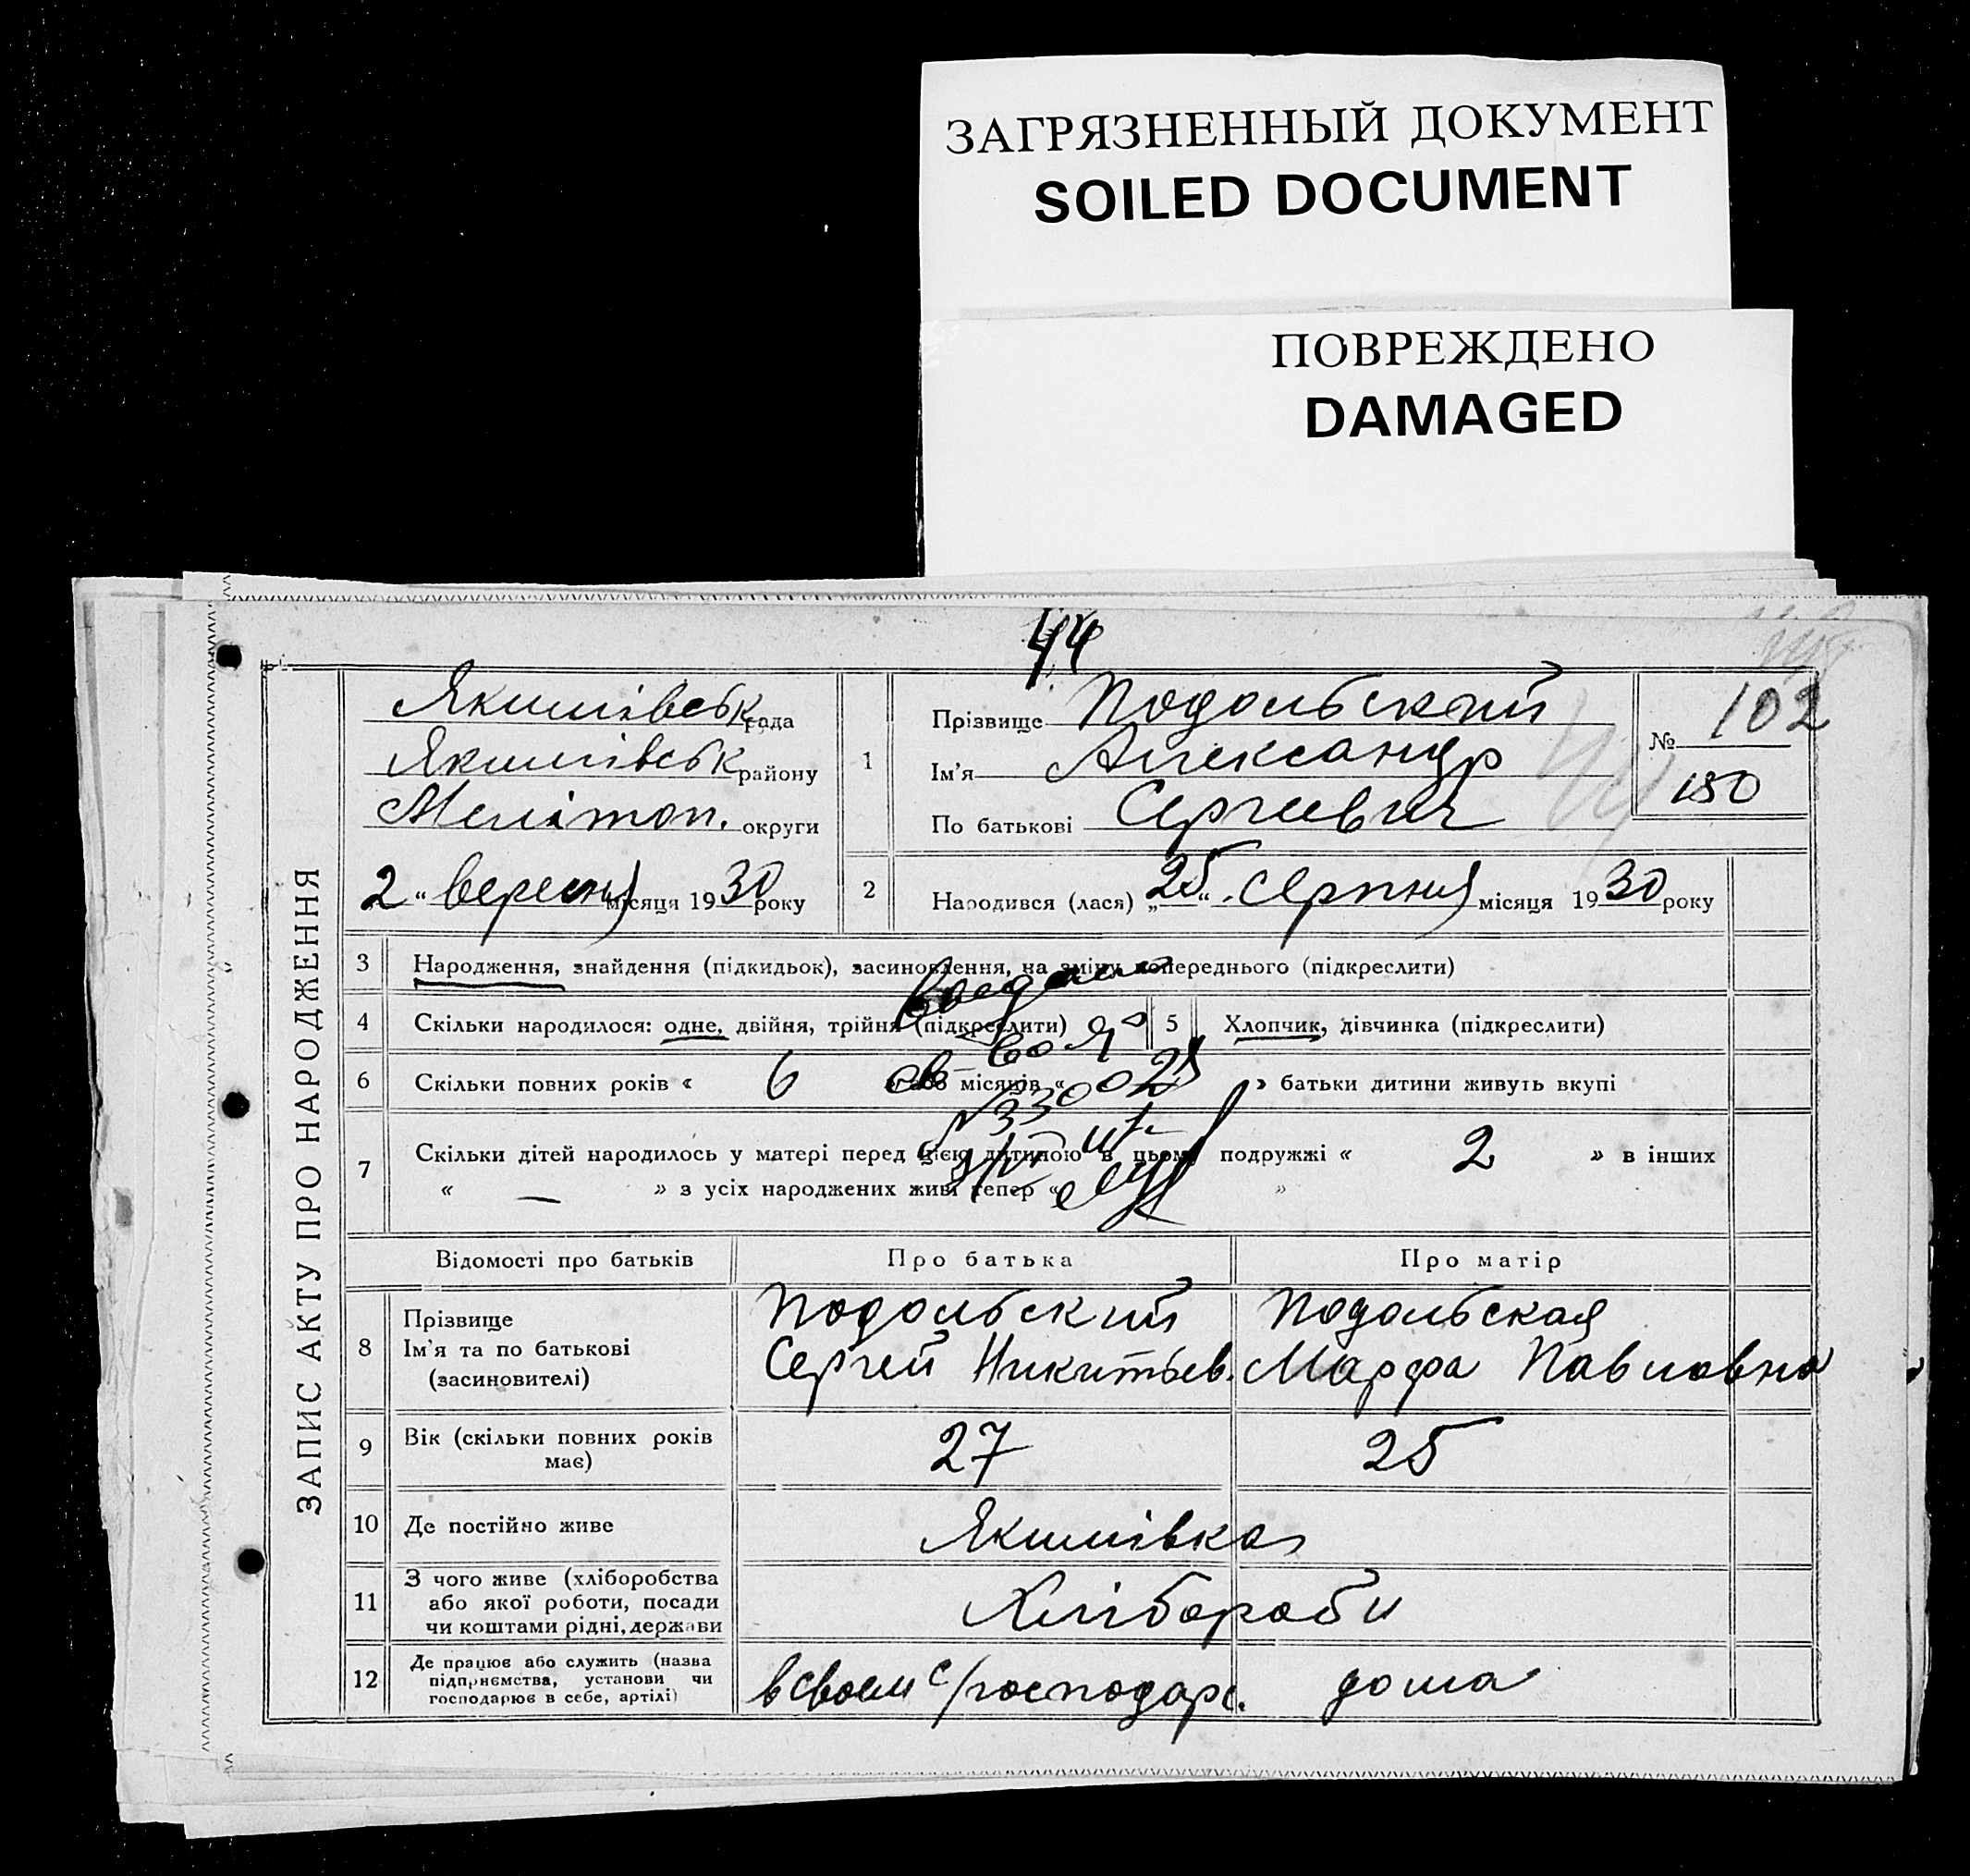 ЗАГРЯЗНЕННЫЙ ДОКУМЕНТ
SOILED DOCUMENT
ПОВРЕЖДЕНО
DAMAGED
44
ЗАПИС АКТУ ПРО НАРОДЖЕННЯ
Якимівськ рада
Якимівськ району
Мелітоп. округи
2 " вересня місяця 1930 року
1
Прізвище Подольский
Ім'я Александр
По батькові Сергеевич
№ 102
150
2
Народився (лася) „25" серпня місяця 1930 року
3 Народження, знайдення (підкидьок), засиновлення, на зміну попереднього (підкреслити)
4 Скільки народилося: одне, двійня, трійня (підкреслити) 5 Хлопчик, дівчинка (підкреслити)
6 Скільки повних років « 6 » або місяців « » батьки дитини живуть вкупі
7 Скільки дітей народилось у матері перед цією дитиною в цьому подружжі « 2 » в інших
« — » з усіх народжених живі тепер « »
Відомості про батьків Про батька Про матір
8 Прізвище Подольский Подольская
Ім'я та по батькові Сергей Никитьев. Марфа Павловна
(засиновителі)
9 Вік (скільки повних років має) 27 25
10 Де постійно живе Якимівка
11 З чого живе (хліборобства
або якої роботи, посади Хлібороби
чи коштами рідні, держави
12 Де працює або служить (назва
підприємства, установи чи в своем с/господарс. дома
господарює в себе, артілі)